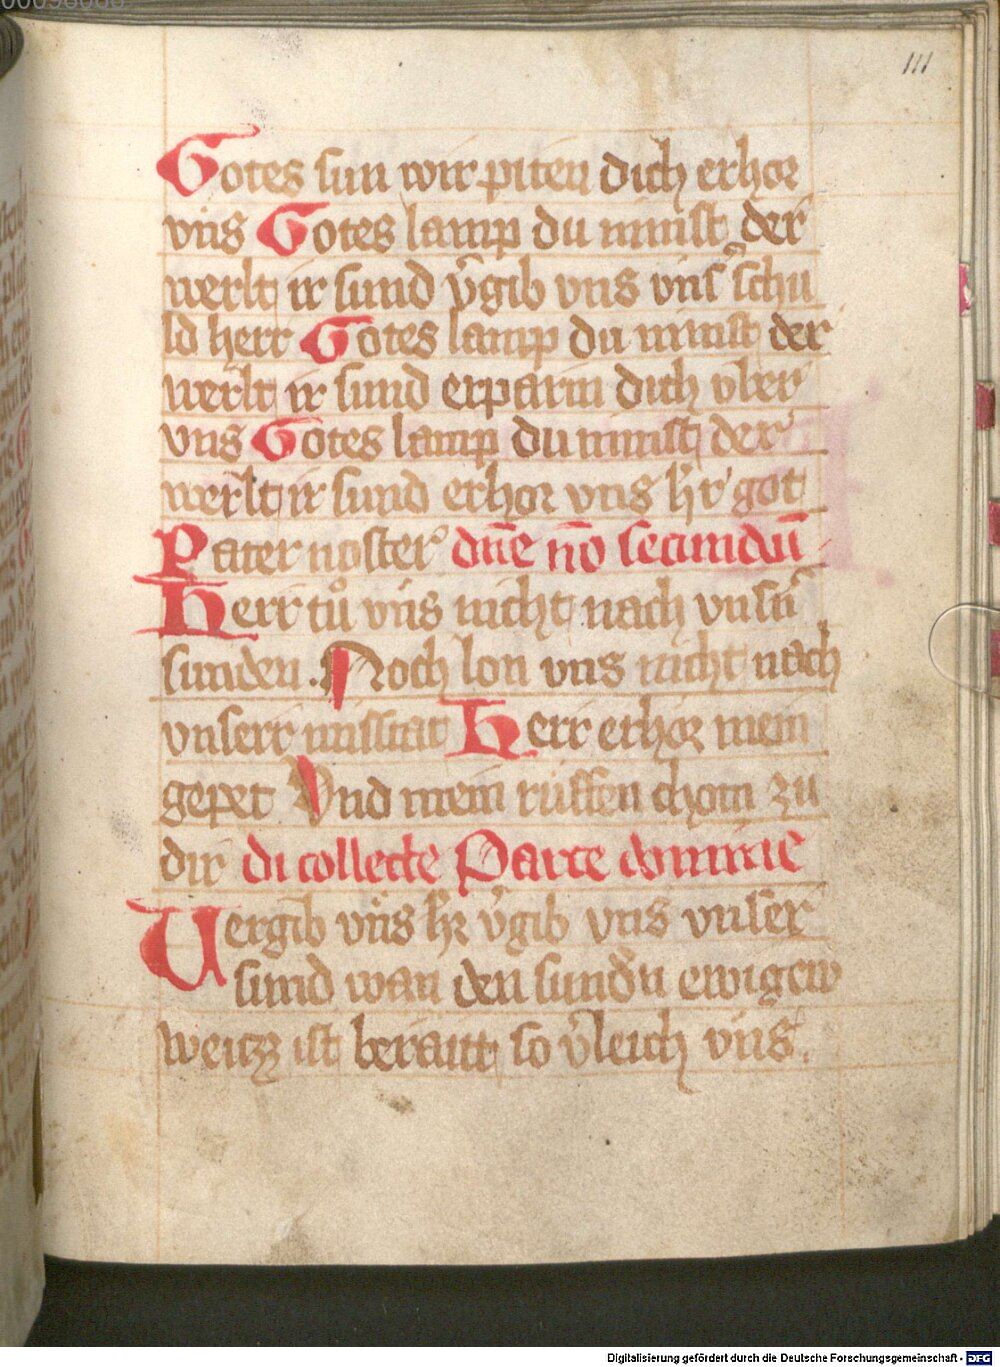 111
Gotes sun wir piten dich erhor
vns Gotes lamp du nimst der
werlt ir sund v̾gib vns vns̾ schu
ld herr Gotes lamp du nimst der
werlt ir sund erparm dich vber
vns Gotes lamp du nimst der
werlt ir sund erhor vns hr̾ got
Pater noster dn̄e nō secundū
Herr tů vns nicht nach vnsn̾
sunden . Noch lon vns nicht nach
vnserr misstat Herr erhor mein
gepet Vnd mein rüffen chom zu
dir di collecte Parce domine
Vergib vns hr v̾gib vns vnser
sund wan den sund̾n ewigew
weitz ist berautt so v̾leich vns.
Digitalisierung gefördert durch die Deutsche Forschungsgemeinschaft - DFG